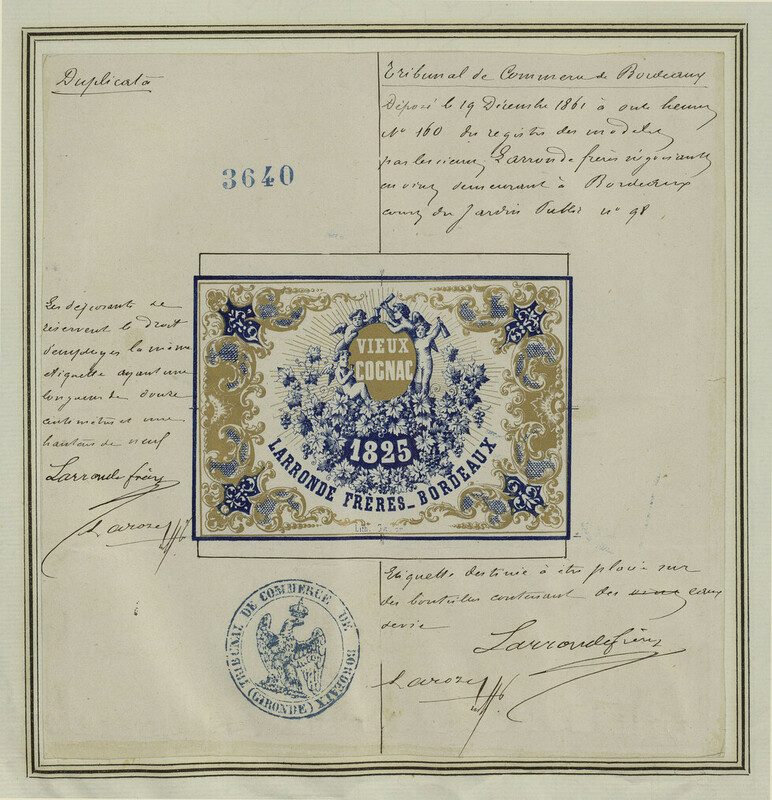 Duplicata
3640
Tribunal de Commerce de Bordeaux
Déposé le 19 Décembre 1861 à onze heures
N° 160 du registre des modeles
par les sieurs Larronde frères négociants
en vins demeurant à Bordeaux
cours du Jardin Public n° 98
Les déposants se
réservent le droit
d'employer la même
etiquette ayant une
longueur de douze
centimètres et une
hauteur de neuf
Larronde frères
Laroze
VIEUX
COGNAC
1825
LARRONDE FRÈRES_BORDEAUX
Lith.
TRIBUNAL DE COMMERCE DE BORDEAUX
(GIRONDE)
Etiquette destinée à être placée sur
des bouteilles contenant des vins eaux
devie
Larronde frères
Laroze